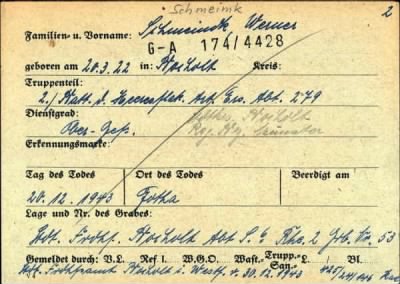 Schmeink
2
Familien- u. Vorname: Schmeinck, Werner
G-A 174/4428
geboren am 20.3.22 in: Bocholt Kreis:
Truppenteil:
2./ Batt. d. Heeresflak. Art. Ers. Abt. 279
Dienstgrad:
Ober-Gefr. Bocholt
Erkennungsmarke: Münster
Tag des Todes Ort des Todes Beerdigt am
20.12.1943 Gotha
Lage und Nr. des Grabes:
Bocholt Abt Rhs. 2 Grb. Nr. 53
Gemeldet durch: V.L. Ref I. W.G.O. Wast.- Trupp.- San.- L./ Bl.
Bocholt i. Westf. v. 30.12.1943